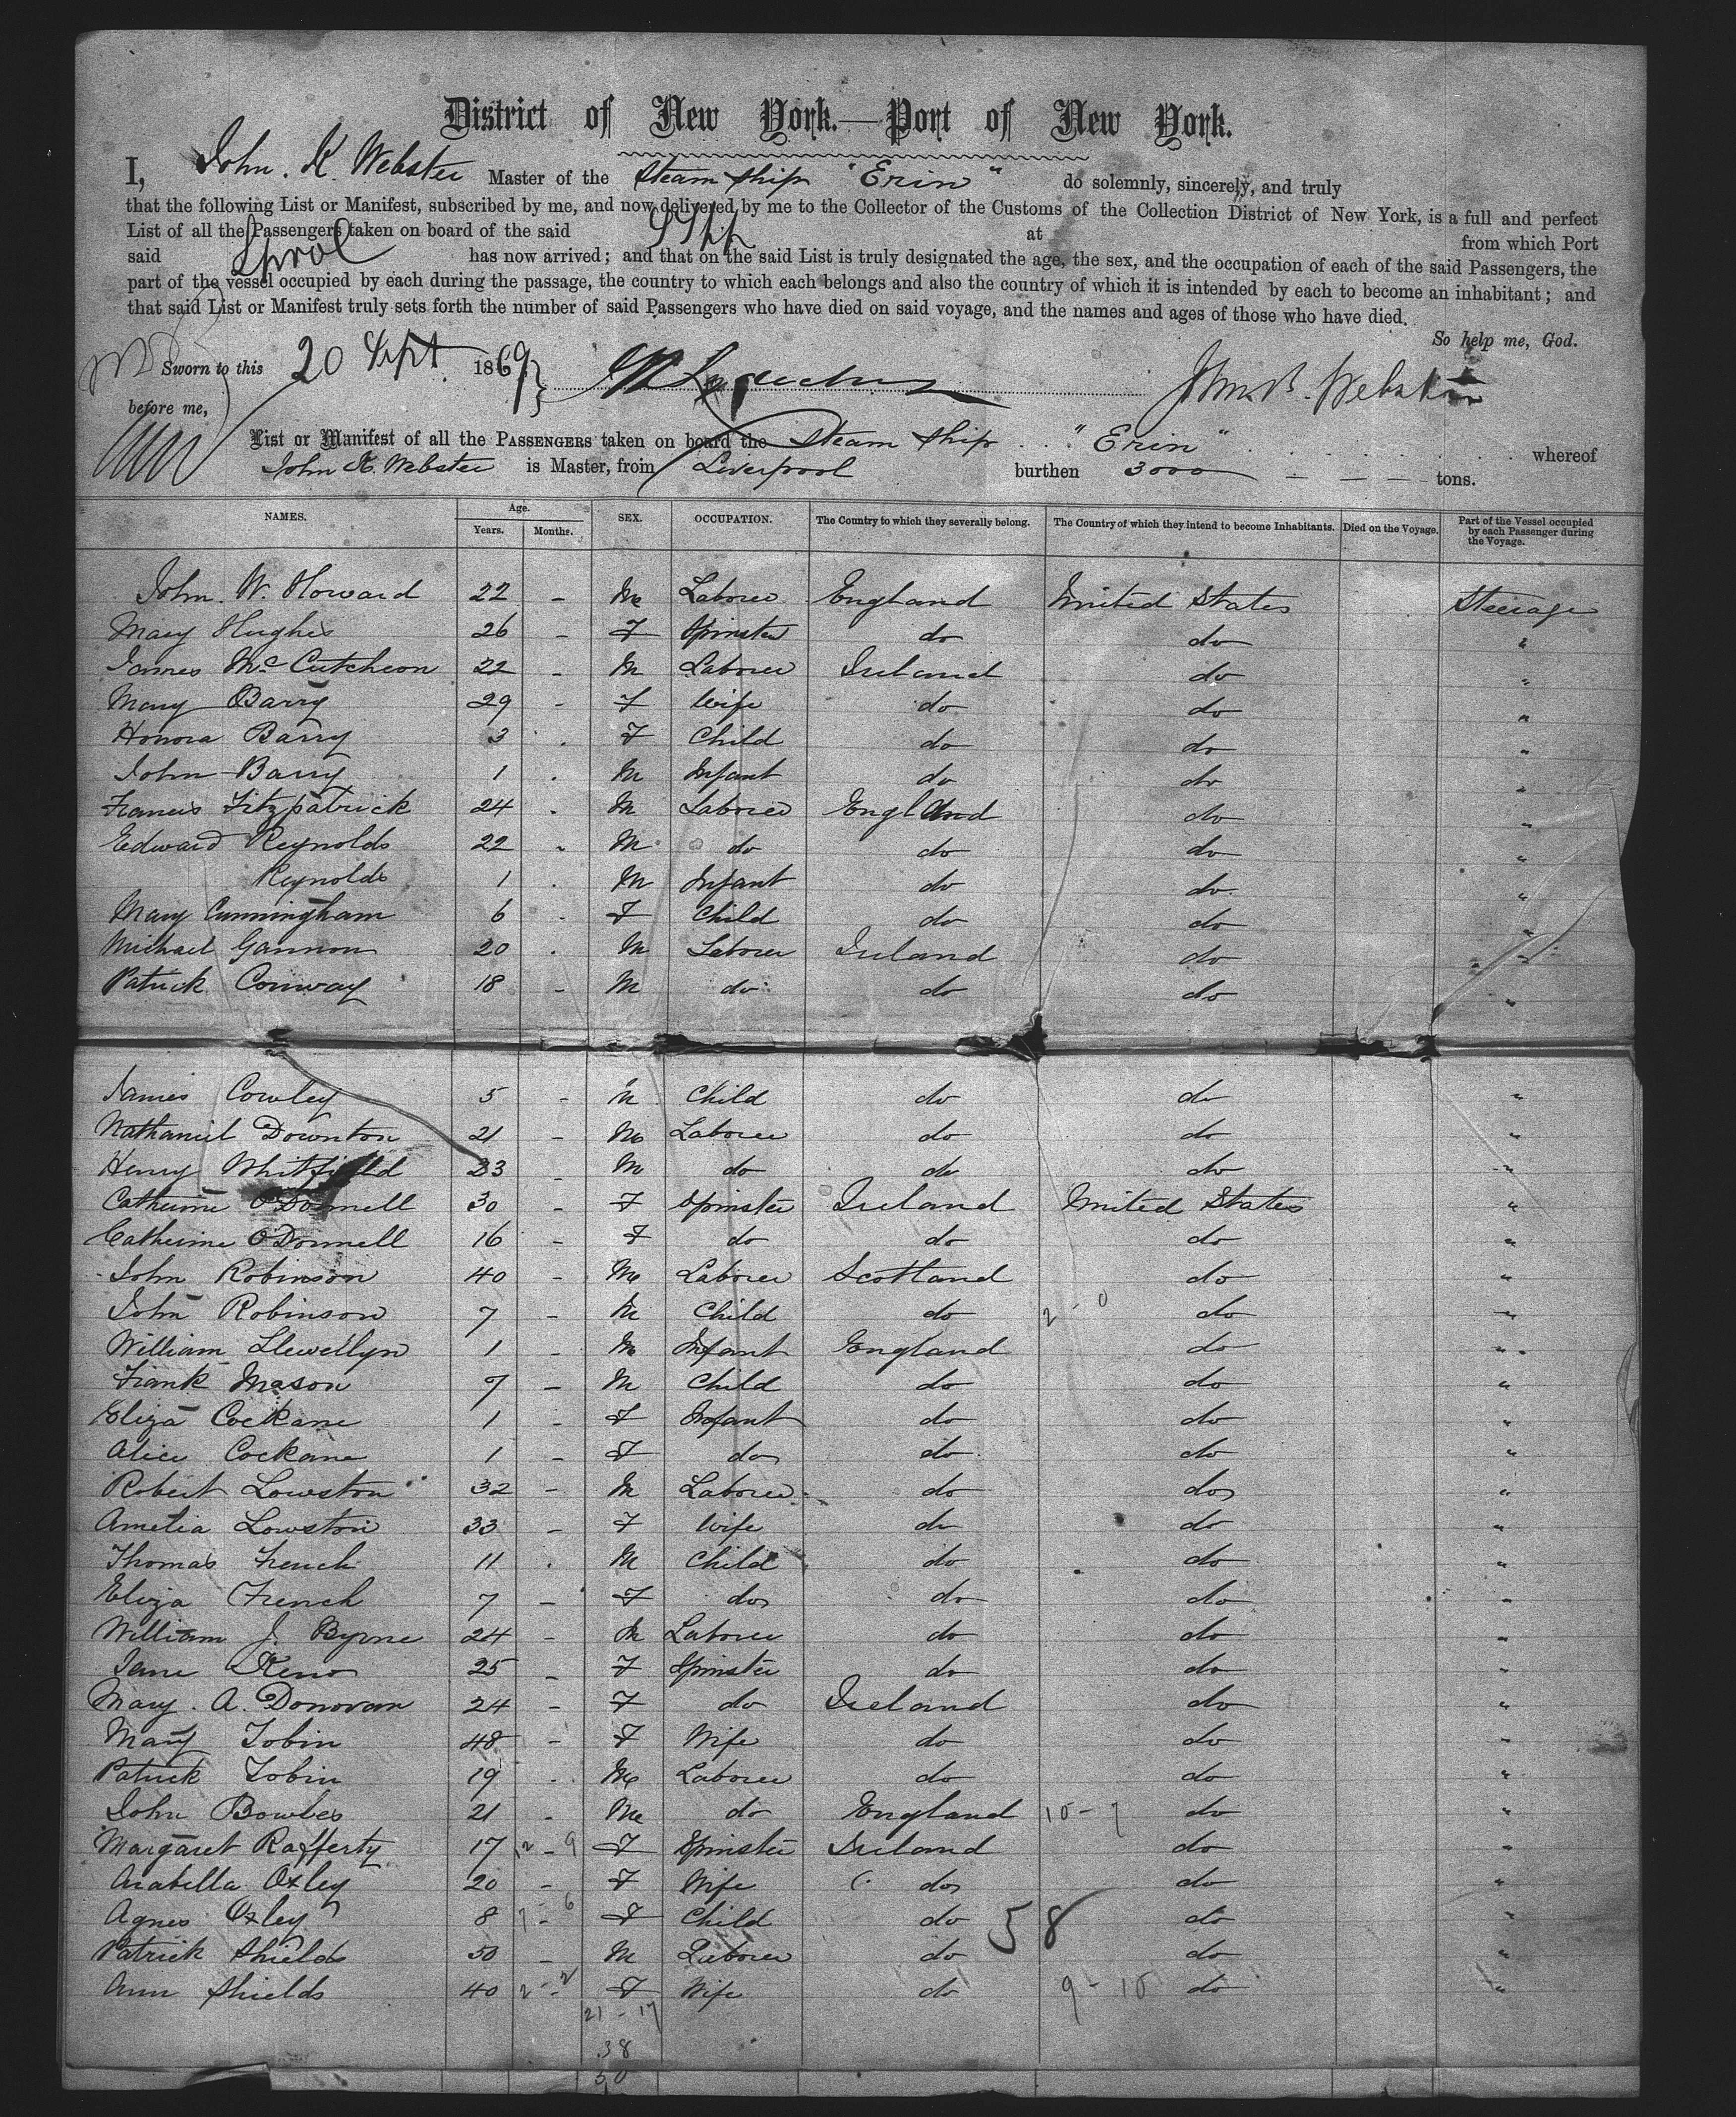 District of New York.—Port of New York.
I, John. K. Webster Master of the Steam Ship "Erin" do solemnly, sincerely, and truly
that the following List or Manifest, subscribed by me, and now delivered by me to the Collector of the Customs of the Collection District of New York, is a full and perfect
List of all the Passengers taken on board of the said at from which Port
said Lpool has now arrived; and that on the said List is truly designated the age, the sex, and the occupation of each of the said Passengers, the
part of the vessel occupied by each during the passage, the country to which each belongs and also the country of which it is intended by each to become an inhabitant; and
that said List or Manifest truly sets forth the number of said Passengers who have died on said voyage, and the names and ages of those who have died.
So help me, God.
Sworn to this 20 Sept 1869
before me,
List or Manifest of all the PASSENGERS taken on board the Steam Ship "Erin" whereof
John K. Webster is Master, from Liverpool burthen 3000 tons.
NAMES. Age. Years. Months. SEX. OCCUPATION. The Country to which they severally belong. The Country of which they intend to become Inhabitants. Died on the Voyage. Part of the Vessel occupied by each Passenger during the Voyage.
John. W. Howard 22 - M Laborer England United States Steerage
Mary Hughes 26 - F Spinster do do "
James McCutcheon 22 - M Laborer Ireland do "
Mary Barry 29 - F Wife do do "
Honora Barry 3 - F Child do do "
John Barry 1 - M Infant do do "
Francis Fitzpatrick 24 - M Laborer England do "
Edward Reynolds 22 - M do do do "
Reynolds 1 - M Infant do do "
Mary Cunningham 6 - F Child do do "
Michael Gannon 20 - M Laborer Ireland do "
Patrick Conway 18 - M do do do "
James Cowley 5 - M Child do do "
Nathaniel Downton 21 - M Laborer do do "
Henry Whitfield 23 - M do do do "
Catherine O'Donnell 30 - F Spinster Ireland United States "
Catherine O'Donnell 16 - F do do do "
John Robinson 40 - M Laborer Scotland do "
John Robinson 7 - M Child do do "
William Llewellyn 1 - M Infant England do "
Frank Mason 7 - M Child do do "
Eliza Cockane 1 - F Infant do do "
Alice Cockane 1 - F do do do "
Robert Lowston 32 - M Laborer do do "
Amelia Lowston 33 - F Wife do do "
Thomas French 11 - M Child do do "
Eliza French 7 - F do do do "
William J. Byrne 24 - M Laborer do do "
Jane Keno 25 - F Spinster do do "
Mary. A. Donovan 24 - F do Ireland do "
Mary Tobin 48 - F Wife do do "
Patrick Tobin 19 - M Laborer do do "
John Bowles 21 - M do England do "
Margaret Rafferty 17 12 - 9 F Spinster Ireland do "
Arabella Oxley 20 - F Wife do do "
Agnes Oxley 8 7 - 6 F Child do 58 do "
Patrick Shields 50 - M Laborer do do "
Ann Shields 40 2 - 2 F Wife do 9 - 10 do "
21 - 17
38
50